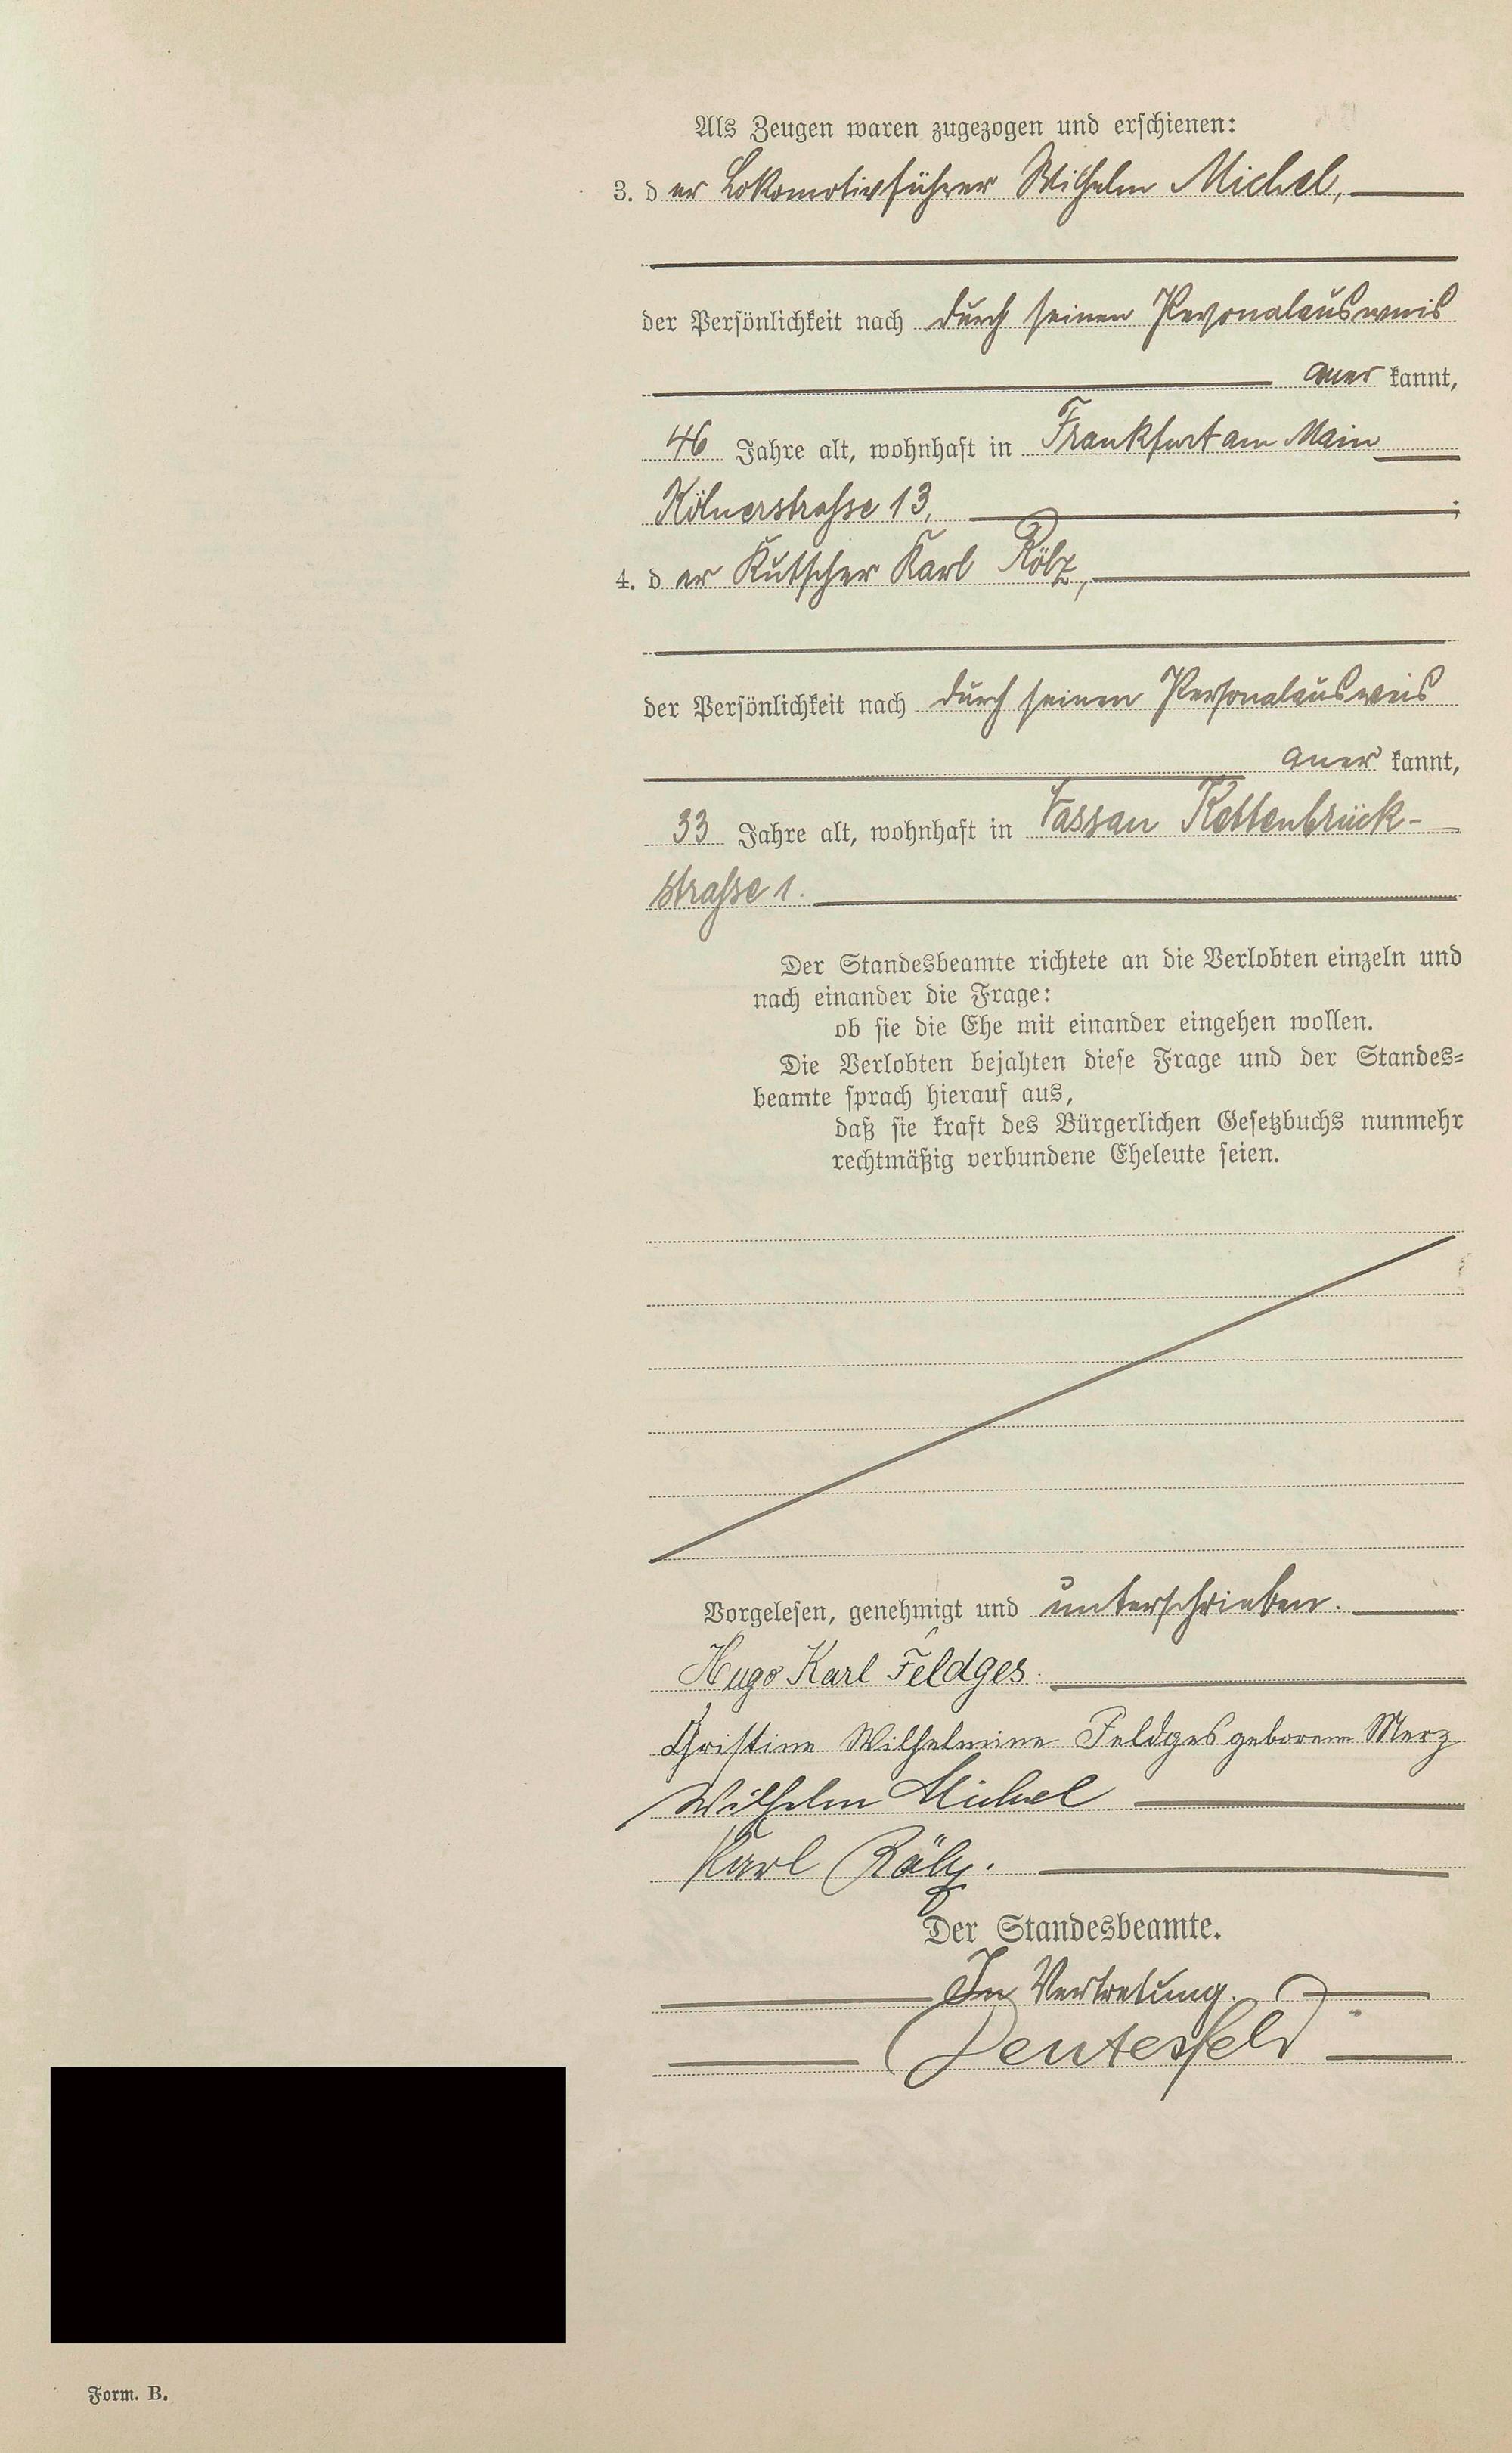 Als Zeugen waren zugezogen und erschienen:
3. der Lokomotivführer Wilhelm Michel,
der Persönlichkeit nach durch seinen Personalausweis
anerkannt,
46 Jahre alt, wohnhaft in Frankfurt am Main
Kölnerstrasse 13, ;
4. der Kutscher Karl Rölz,
der Persönlichkeit nach durch seinen Personalausweis
anerkannt,
33 Jahre alt, wohnhaft in Nassau Kettenbrück-
strasse 1.
Der Standesbeamte richtete an die Verlobten einzeln und
nach einander die Frage:
ob sie die Ehe mit einander eingehen wollen.
Die Verlobten bejahten diese Frage und der Standes-
beamte sprach hierauf aus,
daß sie kraft des Bürgerlichen Gesetzbuchs nunmehr
rechtmäßig verbundene Eheleute seien.
Vorgelesen, genehmigt und unterschrieben.
Hugo Karl Feldges.
Christine Wilhelmine Feldges geborene Merz
Wilhelm Michel
Karl Rölz.
Der Standesbeamte.
In Vertretung.
Deutesfeld
Form. B.